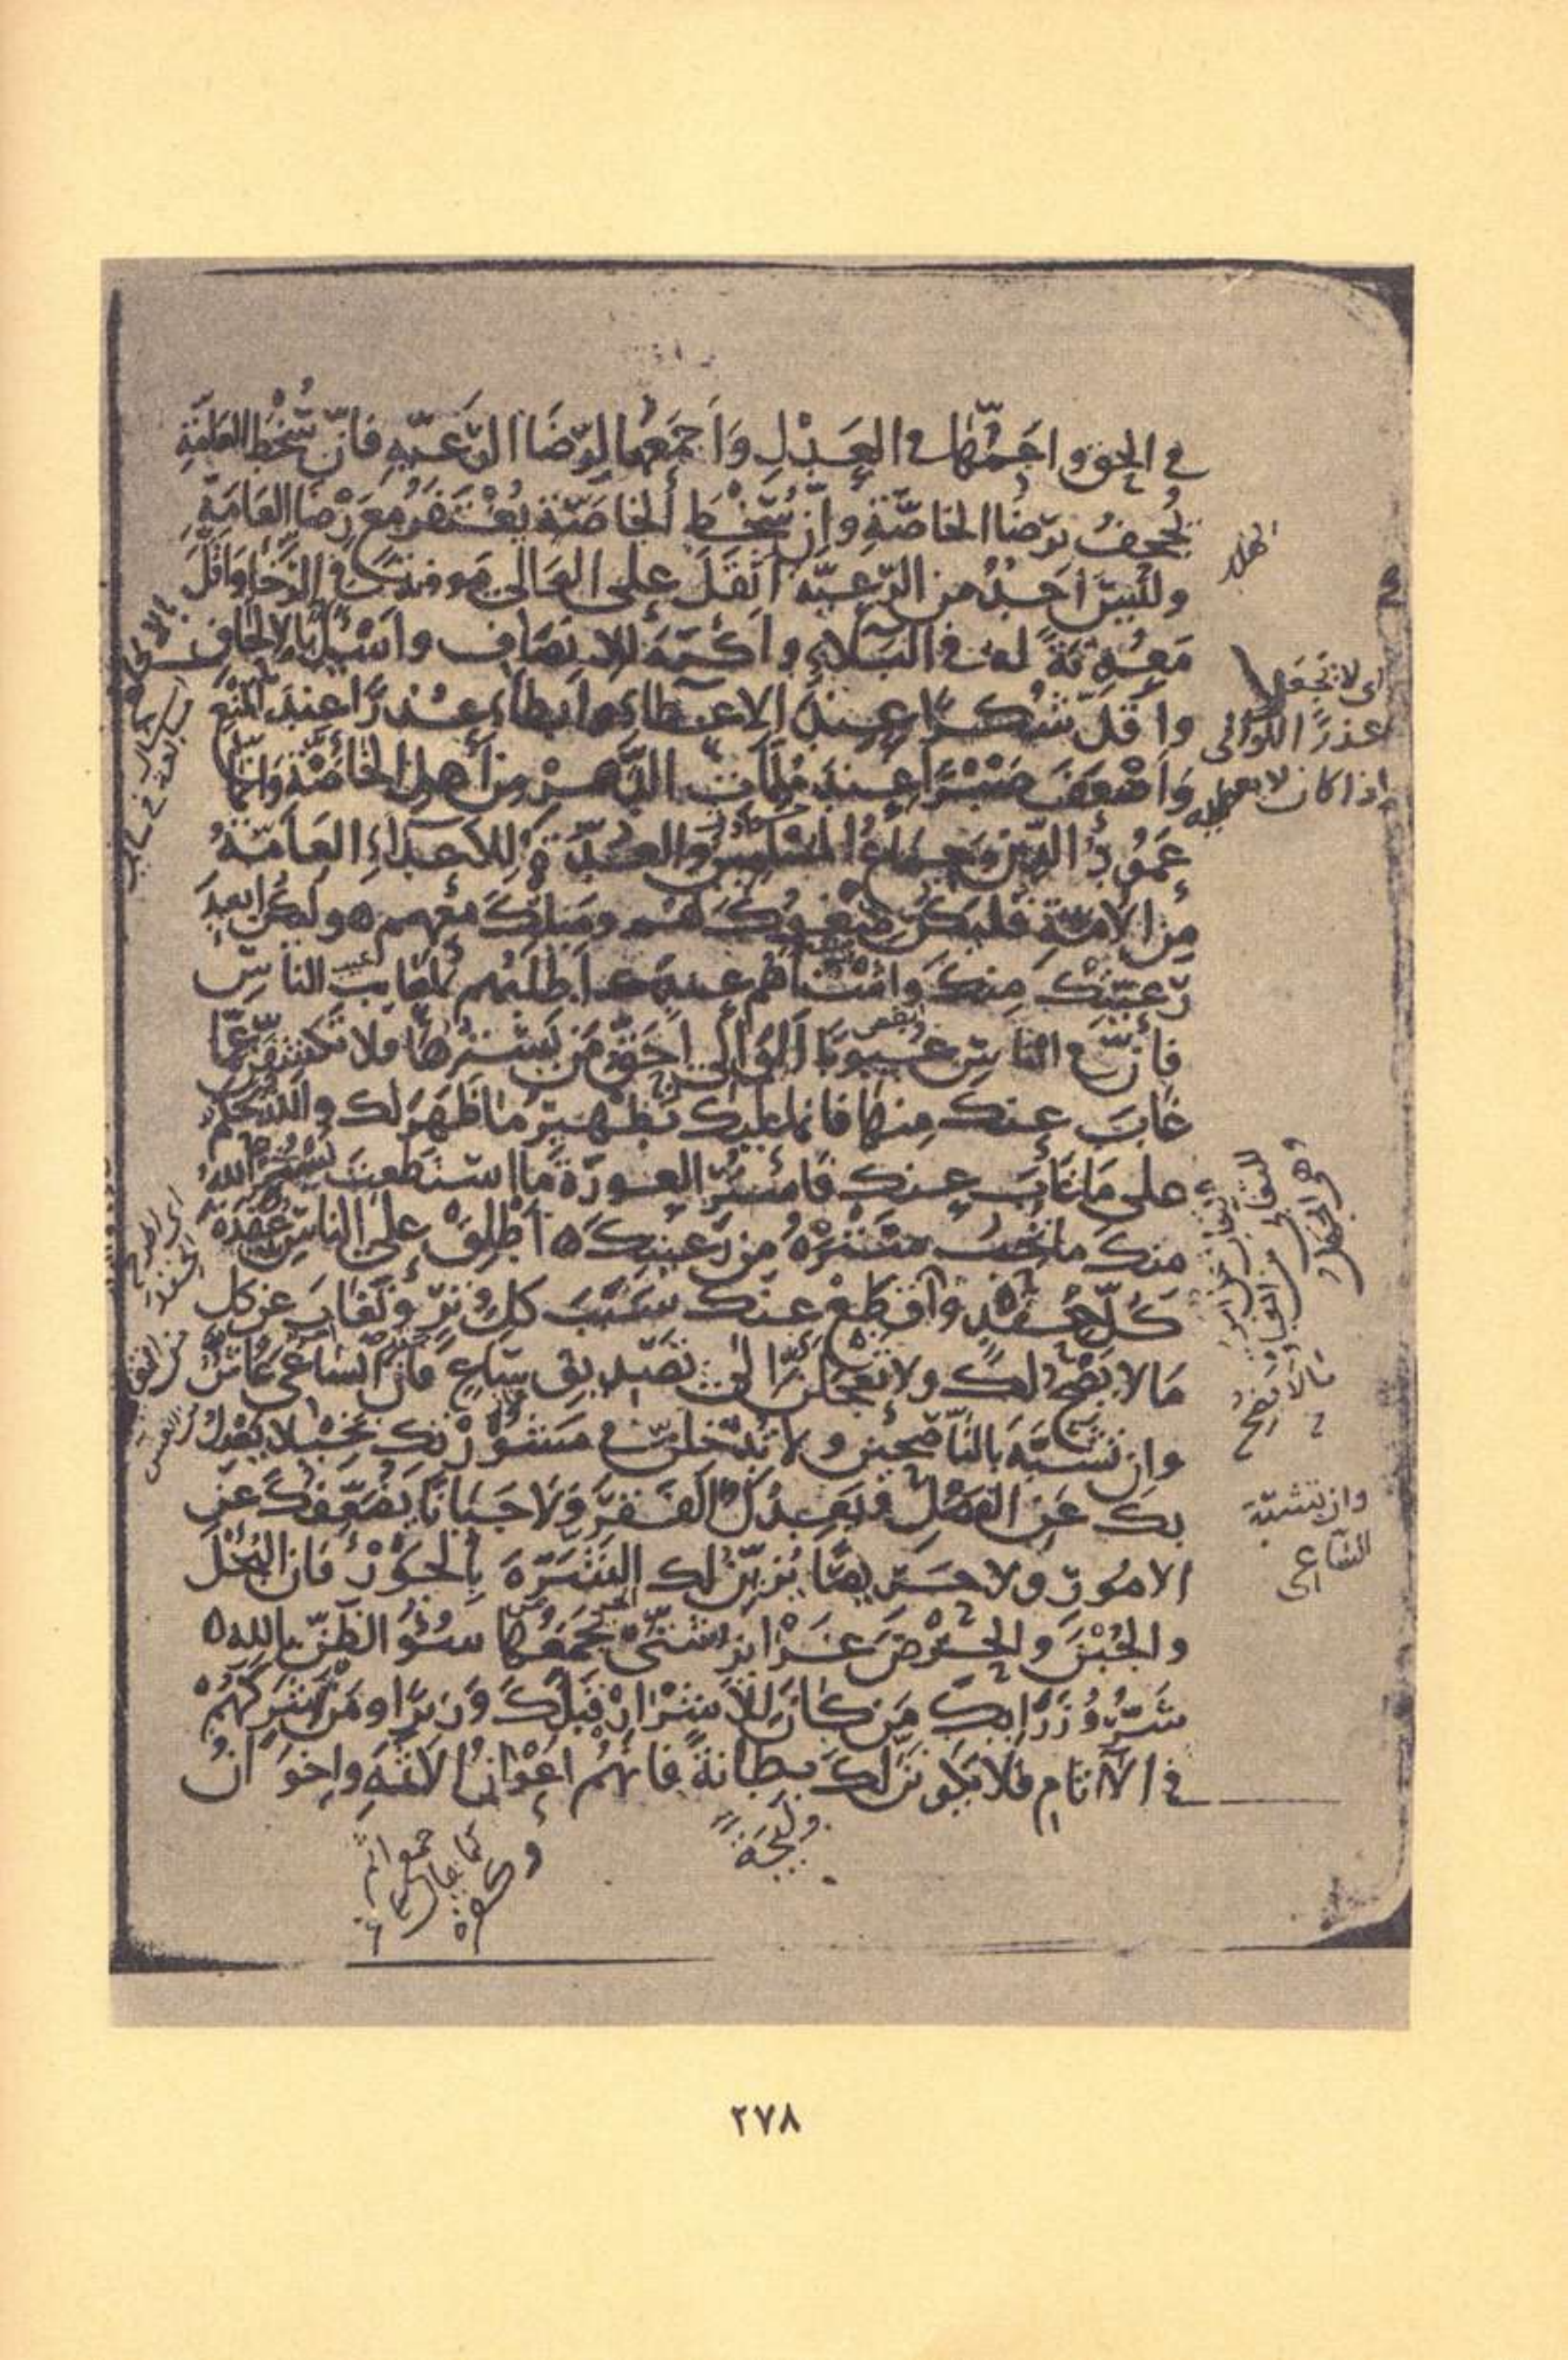 في الحق واعمها في العدل واجمعها لرضا الرعية فان سخط العامة
يجحف برضا الخاصة وان سخط الخاصة يغتفر مع رضا العامة
وليس احد من الرعية اثقل على الوالي مؤونة في الرخا واقل
معونة له في البلاء واكره للانصاف واسئل بالالحاف
واقل شكرا عند الاعطاء وابطاء عذرا عند المنع
واضعف صبرا عند ملمات الدهر من اهل الخاصة وانما
عمود الدين وجماع المسلمين والعدة للاعداء العامة
من الامة فليكن صغوك لهم وميلك معهم ه وليكن ابعد
رعيتك منك واشناهم عندك اطلبهم لمعايب الناس
فان في الناس عيوبا الوالي احق من يسترها فلا تكشفن عما
غاب عنك منها فانما عليك تطهير ما ظهر لك والله يحكم
على ما غاب عنك فاستر العورة ما استطعت يستر الله
منك ما تحب ستره من رعيتك ه اطلق على الناس عقدة
كل حقد واقطع عنك سبب كل وتر وتغاب عن كل
ما لا يضح لك ولا تعجلن الى تصديق ساع فان الساعي غاش
وان تشبه بالناصحين ولا تدخلن في مشورتك بخيلا يعدل
بك عن الفضل ويعدك الفقر ولا جبانا يضعفك عن
الامور ولا حريصا يزين لك الشره بالجور فان البخل
والجبن والحرص غرائز شتى يجمعها سوء الظن بالله ه
شر وزرائك من كان للاشرار قبلك وزيرا ومن شركهم
في الآثام فلا يكونن لك بطانة فانهم اعوان الاثمة واخوان
اي لا تجعل
عذرا للوالي
اذا كان لا يعطيه
ما لا يضح
وان تشبه
الساعي
وليجة
٢٧٨